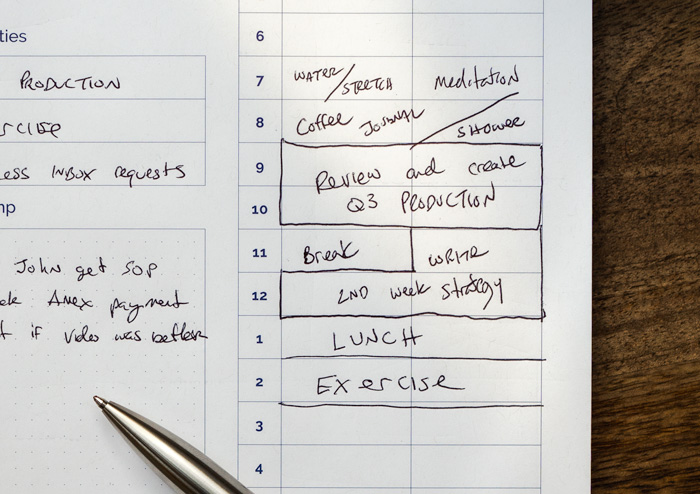 ties
PRODUCTION
rcise
ess INBOX requests
mp
John get SOP
Amex payment
t if video was better
6
7 WATER/STRETCH Meditation
8 Coffee JOURNAL / SHOWER
9 Review and create
10 Q3 PRODUCTION
11 Break WRITE
12 2ND week strategy
1 LUNCH
2 Exercise
3
4